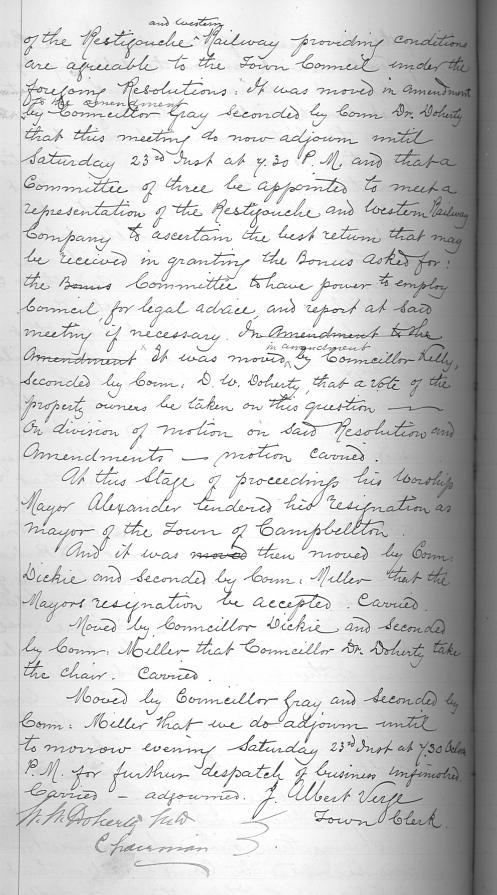 and western
of the Restigouche ^ Railway providing conditions
are agreeable to the Town Council under the
foregoing Resolutions: It was moved in amendment
to the amendment
by Councillor Gray Seconded by Coun Dr. Doherty
that this meeting do now adjourn until
Saturday 23rd Inst at 7.30 P.M. and that a
Committee of three be appointed to meet a
representation of the Restigouche and Western Railway
Company to ascertain the best return that may
be received in granting the Bonus asked for:
the Bonus Committee to have power to employ
Council, for legal advice, and report at said
meeting if necessary. In Amendment to the
in amendment
Amendment It was moved ^ by Councillor Kelly,
Seconded by Coun: D. W. Doherty, that a vote of the
property owners be taken on this question —
On division of motion on said Resolution and
Amendments — motion carried.
At this Stage of proceedings his Worship
Mayor Alexander tendered his resignation as
mayor of the Town of Campbellton.
And it was moved then moved by Coun:
Dickie and Seconded by Coun: Miller that the
Mayors resignation be accepted. Carried.
Moved by Councillor Dickie and Seconded
by Coun: Miller that Councillor Dr. Doherty take
the chair. Carried.
Moved by Councillor Gray and Seconded by
Coun: Miller that we do adjourn until
to morrow evening Saturday 23rd Inst at 7.30 Oclock
P.M. for further despatch of business unfinished
Carried — adjourned. J. Albert Verge
Doherty
Town Clerk.
Chairman